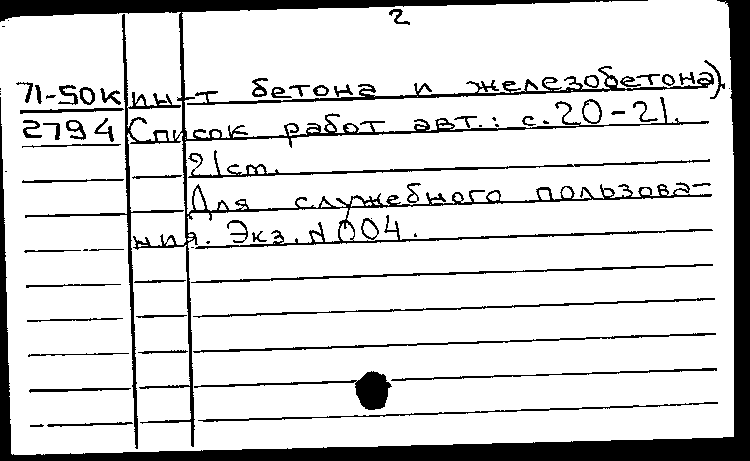 2
71-50к ин-т бетона и железобетона).
2794 Список работ авт.: с. 20-21.
21 ст.
Для служебного пользова-
ния. Экз. N 004.